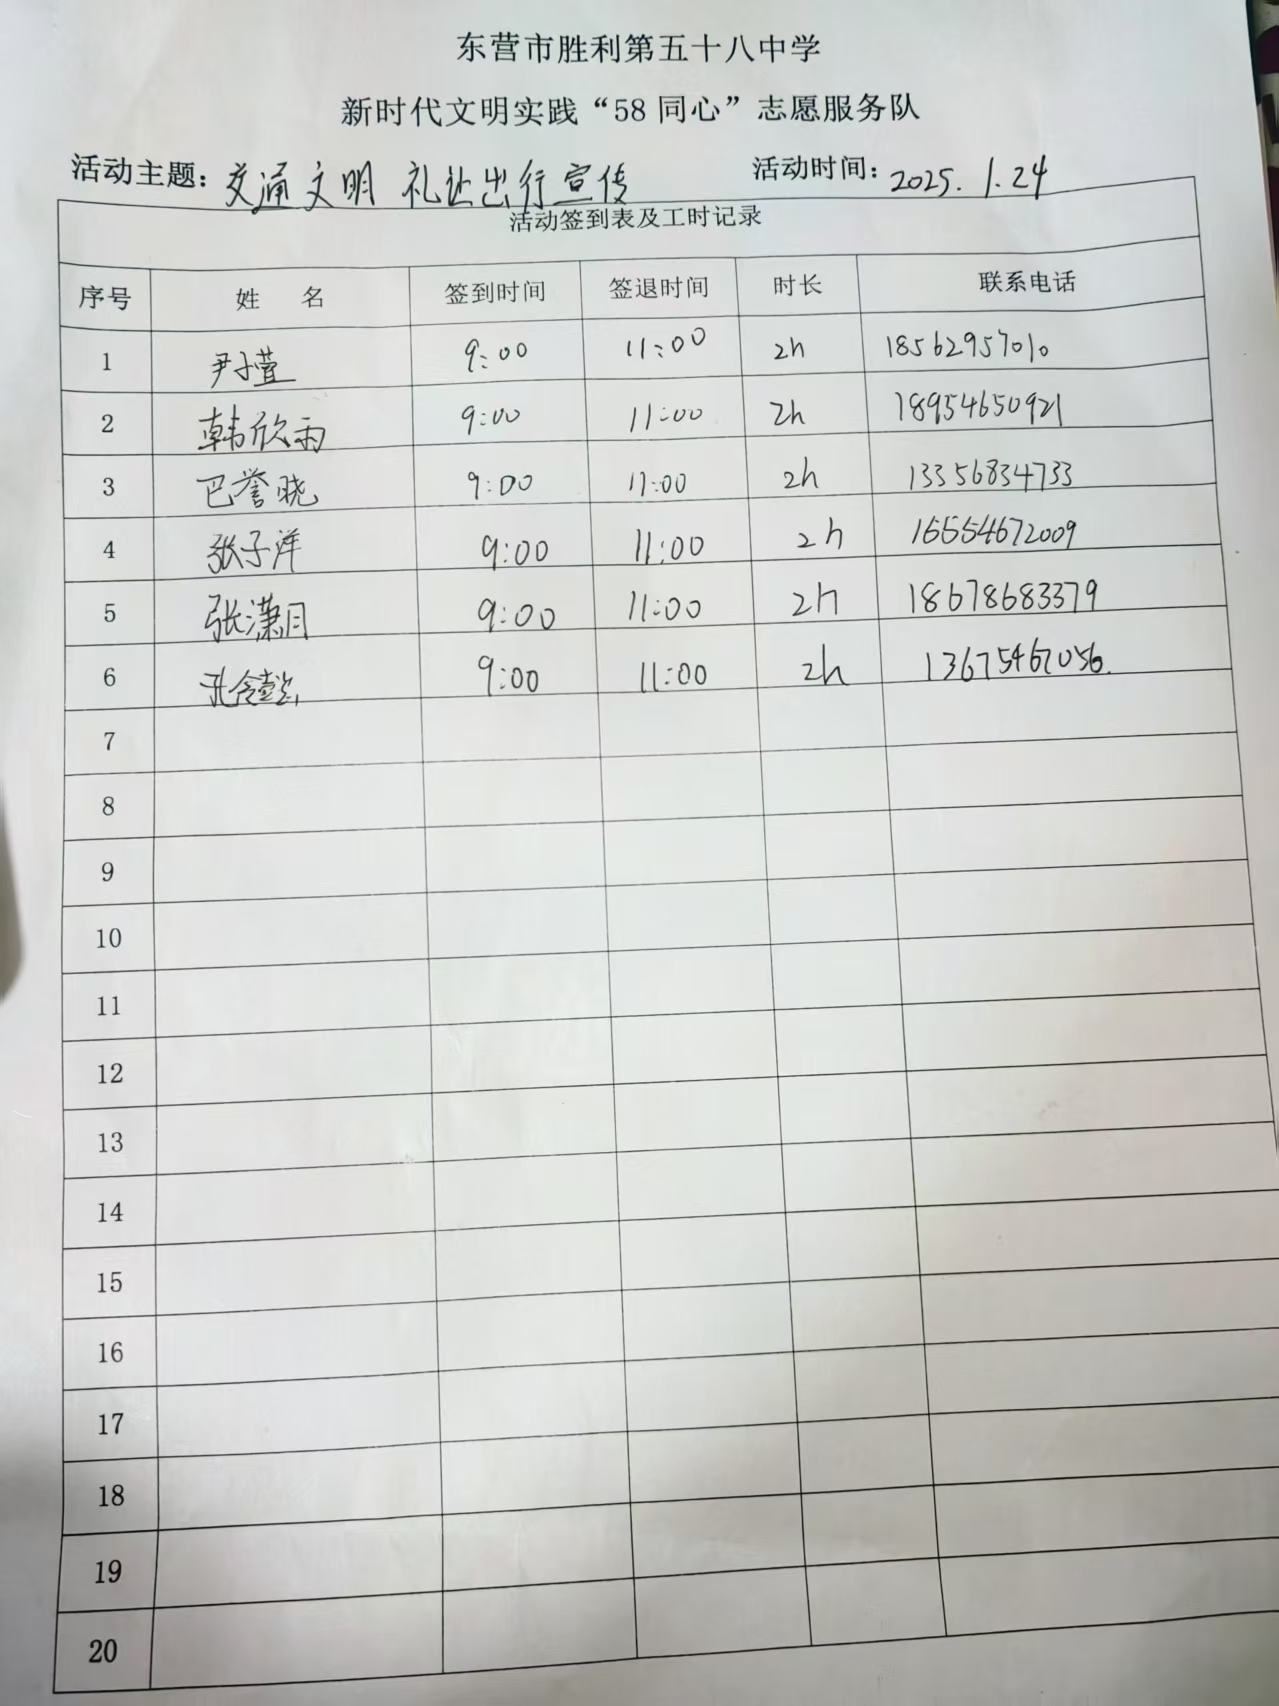 东营市胜利第五十八中学
新时代文明实践“58同心”志愿服务队
活动主题：交通文明 礼让出行宣传 活动时间：2025.1.24
活动签到表及工时记录
序号 姓 名 签到时间 签退时间 时长 联系电话
1 尹子萱 9:00 11:00 2h 18562957010
2 韩欣雨 9:00 11:00 2h 18954650921
3 巴誉晓 9:00 11:00 2h 13356834733
4 张子洋 9:00 11:00 2h 16554672009
5 张潇月 9:00 11:00 2h 18678683379
6 9:00 11:00 2h 13675467056.
7
8
9
10
11
12
13
14
15
16
17
18
19
20